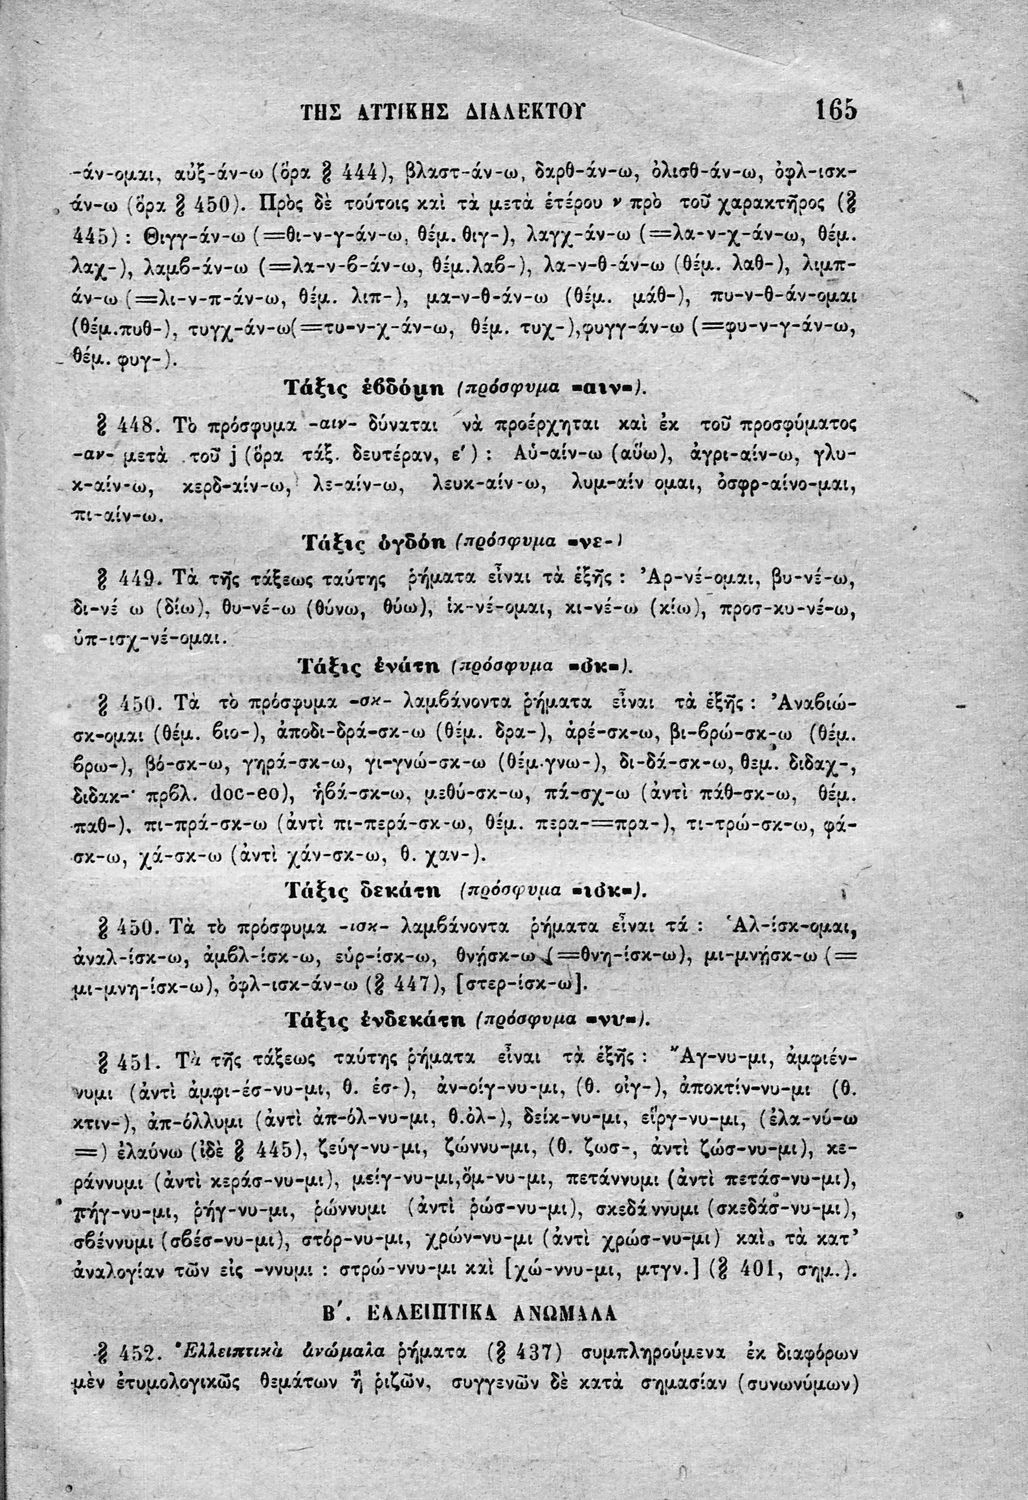 ΤΗΣ ΑΤΤΙΚΗΣ ΔΙΑΛΕΚΤΟΥ 165
-άν-ομαι, αὐξ-άν-ω (ὅρα § 444), βλαστ-άν-ω, δαρθ-άν-ω, ὀλισθ-άν-ω, ὀφλ-ισκ-
άν-ω (ὅρα § 450). Πρὸς δὲ τούτοις καὶ τὰ μετὰ ἑτέρου ν πρὸ τοῦ χαρακτῆρος (§
445) : Θιγγ-άν-ω (=θι-ν-γ-άν-ω, θέμ. θιγ-), λαγχ-άν-ω (=λα-ν-χ-άν-ω, θέμ.
λαχ-), λαμϐ-άν-ω (=λα-ν-ϐ-άν-ω, θέμ.λαϐ-), λα-ν-θ-άν-ω (θέμ. λαθ-), λιμπ-
άν-ω (=λι-ν-π-άν-ω, θέμ. λιπ-), μα-ν-θ-άν-ω (θέμ. μάθ-), πυ-ν-θ-άν-ομαι
(θέμ.πυθ-), τυγχ-άν-ω(=τυ-ν-χ-άν-ω, θέμ. τυχ-),φυγγ-άν-ω (=φυ-ν-γ-άν-ω,
θέμ. φυγ-).
Τάξις ἑϐδόμη (πρόσφυμα -αιν-).
§ 448. Τὸ πρόσφυμα -αιν- δύναται νὰ προέρχηται καὶ ἐκ τοῦ προσφύματος
-αν- μετὰ τοῦ j (ὅρα τάξ. δευτέραν, ε') : Αὐ-αίν-ω (αὔω), ἀγρι-αίν-ω, γλυ-
κ-αίν-ω, κερδ-αίν-ω, λε-αίν-ω, λευκ-αίν-ω, λυμ-αίν ομαι, ὀσφρ-αίνο-μαι,
πι-αίν-ω.
Τάξις ὀγδόη (πρόσφυμα -νε-)
§ 449. Τὰ τῆς τάξεως ταύτης ῥήματα εἶναι τὰ ἑξῆς : Ἀρ-νέ-ομαι, βυ-νέ-ω,
δι-νέ ω (δίω), θυ-νέ-ω (θύνω, θύω), ἱκ-νέ-ομαι, κι-νέ-ω (κίω), προσ-κυ-νέ-ω,
ὑπ-ισχ-νέ-ομαι.
Τάξις ἐνάτη (πρόσφυμα -σκ-).
§ 450. Τὰ τὸ πρόσφυμα -σκ- λαμϐάνοντα ῥήματα εἶναι τὰ ἑξῆς : Ἀναβιώ-
σκ-ομαι (θέμ. ϐιο-), ἀποδι-δρά-σκ-ω (θέμ. δρα-), ἀρέ-σκ-ω, βι-ϐρώ-σκ-ω (θέμ.
ϐρω-), βό-σκ-ω, γηρά-σκ-ω, γι-γνώ-σκ-ω (θέμ.γνω-), δι-δά-σκ-ω, θεμ. διδαχ-,
διδακ-· πρϐλ. doc-eo), ἡϐά-σκ-ω, μεθύ-σκ-ω, πά-σχ-ω (ἀντὶ πάθ-σκ-ω, θέμ.
παθ-), πι-πρά-σκ-ω (ἀντὶ πι-περά-σκ-ω, θέμ. περα-=πρα-), τι-τρώ-σκ-ω, φά-
σκ-ω, χά-σκ-ω (ἀντὶ χάν-σκ-ω, θ. χαν-).
Τάξις δεκάτη (πρόσφυμα -ισκ-).
§ 450. Τὰ τὸ πρόσφυμα -ισκ- λαμϐάνοντα ῥήματα εἶναι τά : Ἁλ-ίσκ-ομαι,
ἀναλ-ίσκ-ω, ἀμϐλ-ίσκ-ω, εὑρ-ίσκ-ω, θνῄσκ-ω (=θνη-ίσκ-ω), μι-μνῄσκ-ω (=
μι-μνη-ίσκ-ω), ὀφλ-ισκ-άν-ω (§ 447), [στερ-ίσκ-ω].
Τάξις ἑνδεκάτη (πρόσφυμα -νυ-).
§ 451. Τὰ τῆς τάξεως ταύτης ῥήματα εἶναι τὰ ἑξῆς : Ἄγ-νυ-μι, ἀμφιέν-
νυμι (ἀντὶ ἀμφι-έσ-νυ-μι, θ. ἑσ-), ἀν-οίγ-νυ-μι, (θ. οἰγ-), ἀποκτίν-νυ-μι (θ.
κτιν-), ἀπ-όλλυμι (ἀντὶ ἀπ-όλ-νυ-μι, θ.ὀλ-), δείκ-νυ-μι, εἵργ-νυ-μι, (ἐλα-νύ-ω
=) ἐλαύνω (ἰδὲ § 445), ζεύγ-νυ-μι, ζώννυ-μι, (θ. ζωσ-, ἀντὶ ζώσ-νυ-μι), κε-
ράννυμι (ἀντὶ κεράσ-νυ-μι), μείγ-νυ-μι,ὄμ-νυ-μι, πετάννυμι (ἀντὶ πετάσ-νυ-μι),
πήγ-νυ-μι, ῥήγ-νυ-μι, ῥώννυμι (ἀντὶ ῥώσ-νυ-μι), σκεδάννυμι (σκεδάσ-νυ-μι),
σϐέννυμι (σϐέσ-νυ-μι), στόρ-νυ-μι, χρών-νυ-μι (ἀντὶ χρώσ-νυ-μι) καὶ τὰ κατ'
ἀναλογίαν τῶν εἰς -ννυμι : στρώ-ννυ-μι καὶ [χώ-ννυ-μι, μτγν.] (§ 401, σημ.).
Β'. ΕΛΛΕΙΠΤΙΚΑ ΑΝΩΜΑΛΑ
§ 452. Ἐλλειπτικὰ ἀνώμαλα ῥήματα (§ 437) συμπληρούμενα ἐκ διαφόρων
μὲν ἐτυμολογικῶς θεμάτων ἢ ῥιζῶν, συγγενῶν δὲ κατὰ σημασίαν (συνωνύμων)